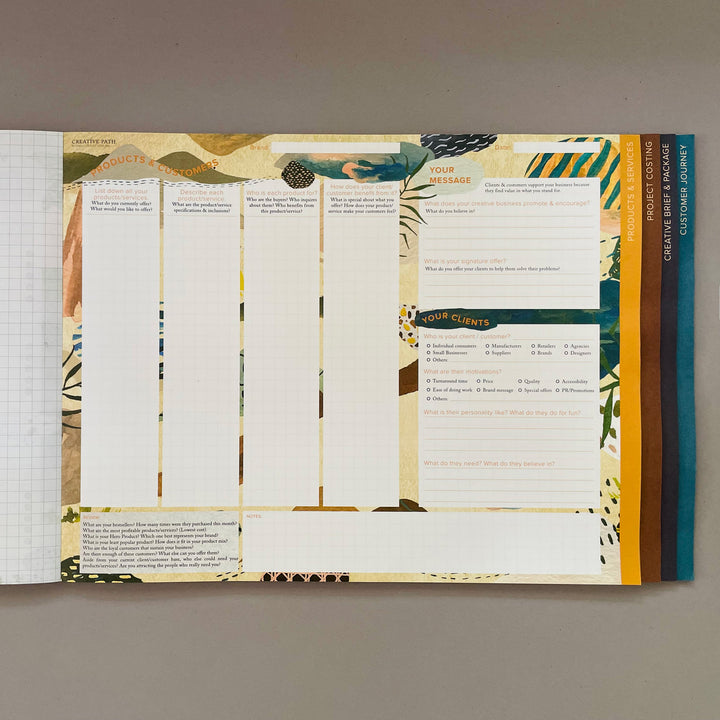 CREATIVE PATH
Brand:
Date:
PRODUCTS & CUSTOMERS
List down all your
products/services.
What do you currently offer?
What would you like to offer?
Describe each
product/service.
What are the product/service
specifications & inclusions?
Who is each product for?
Who are the buyers? Who inquires
about them? Who benefits from
this product/service?
How does your client/
customer benefit from it?
What is special about what you
offer? How does your product/
service make your customers feel?
YOUR
MESSAGE
Clients & customers support your business because
they find value in what you stand for.
What does your creative business promote & encourage?
What do you believe in?
What is your signature offer?
What do you offer your clients to help them solve their problems?
YOUR CLIENTS
Who is your client / customer?
Individual consumers Manufacturers Retailers Agencies
Small Businesses Suppliers Brands Designers
Others
What are their motivations?
Turnaround time Price Quality Accessibility
Ease of doing work Brand message Special offers PR/Promotions
Others
What is their personality like? What do they do for fun?
What do they need? What do they believe in?
REVIEW:
What are your bestsellers? How many times were they purchased this month?
What are the most profitable products/services? (Lowest cost)
What is your Hero Product? Which one best represents your brand?
What is your least popular product? How does it fit in your product mix?
Who are the loyal customers that sustain your business?
Are there enough of these customers? What else can you offer them?
Aside from your current client/customer base, who else could need your
products/services? Are you attracting the people who really need you?
NOTES:
PRODUCTS & SERVICES
PROJECT COSTING
CREATIVE BRIEF & PACKAGE
CUSTOMER JOURNEY